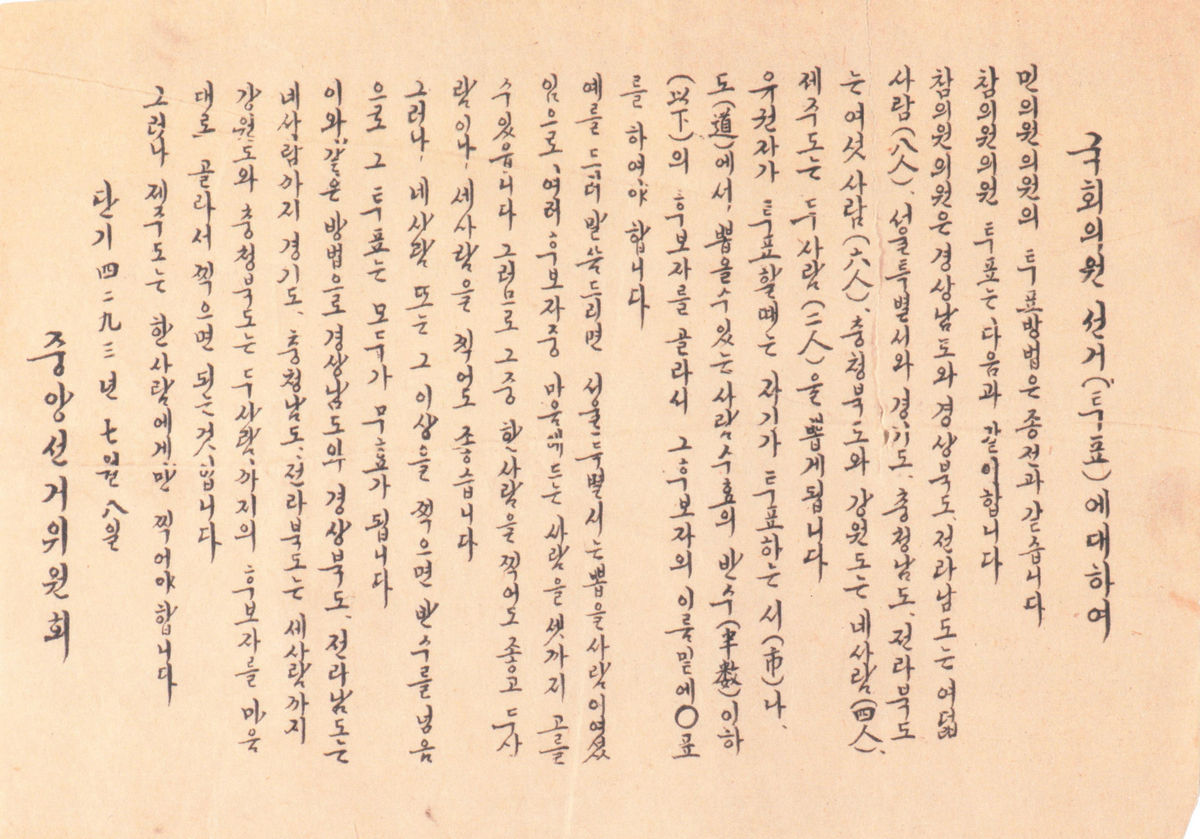 국회의원 선거(투표)에대하여
민의원의원의 투표방법은 종전과 같습니다
참의원의원 투표는 다음과 같이합니다
참의원의원은 경상남도와 경상북도, 전라남도는 여덟
사람(八人), 서울특별시와 경기도, 충청남도, 전라북도
는 여섯 사람(六人), 충청북도와 강원도는 네사람(四人),
제주도는 두사람(二人)을 뽑게됩니다
유권자가 투표할때는 자기가 투표하는 시(市)나,
도(道)에서, 뽑을수있는 사람수효의 반수(半数)이하
(以下)의 후보자를 골라서 그후보자의 이름밑에 〇표
를 하여야 합니다
예를 들어 말씀드리면 서울특별시는 뽑을사람이여섯
임으로, 여러후보자중 마음에 드는 사람을 셋까지 고를
수있읍니다 그럼므로 그중 한사람을 찍어도 좋고 두사
람이나, 세사람을 찍어도 좋습니다
그러나, 네사람 또는 그 이상을 찍으면 반수를 넘음
으로 그 투표는 모두가 무효가 됩니다
이와같은 방법으로 경상남도와 경상북도, 전라남도는
네사람까지 경기도, 충청남도, 전라북도는 세사람까지
강원도와 충청북도는 두사람까지의 후보자를 마음
대로 골라서 찍으면 되는것입니다
그러나 제주도는 한사람에게만 찍어야합니다
단기 四二九三년 七월 八일
중앙선거위원회